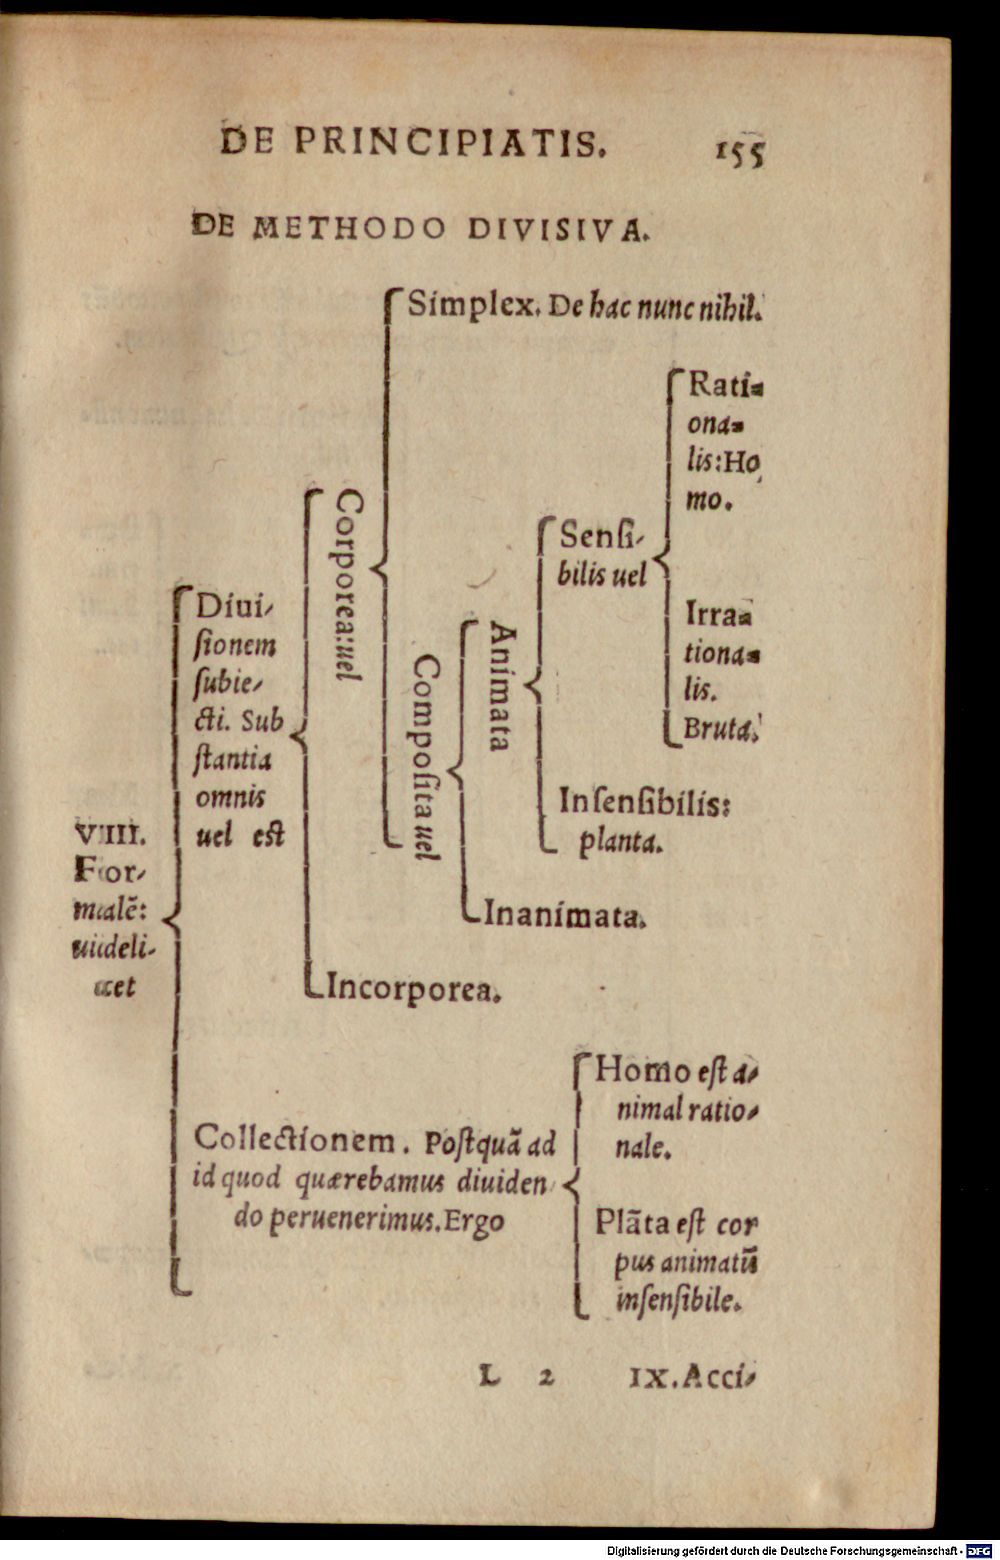 DE PRINCIPIATIS. 155
DE METHODO DIVISIVA.
VIII.
For-
malẽ:
uideli-
cet
Diui-
ſionem
ſubie-
cti. Sub
ſtantia
omnis
uel est
Corporea: uel
Simplex. De hac nunc nihil.
Compoſita uel
Animata
Senſi-
bilis uel
Rati-
ona-
lis: Ho
mo.
Irra-
tiona-
lis.
Bruta.
Inſenſibilis:
planta.
Inanimata.
Incorporea.
Collectionem. Poſtquã ad
id quod quærebamus diuiden
do peruenerimus. Ergo
Homo eſt a-
nimal ratio-
nale.
Plãta eſt cor
pus animatũ
inſenſibile.
L 2 IX. Acci-
Digitalisierung gefördert durch die Deutsche Forschungsgemeinschaft - DFG